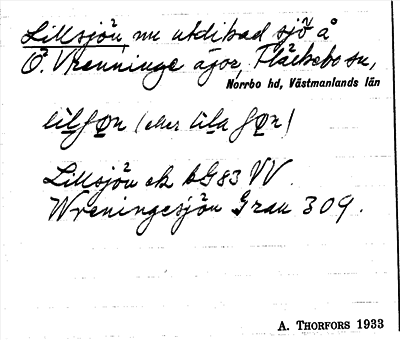 Lillsjön, nu utdikad sjö å
Ö. Vrenninge ägor, Fläckebo sn,
Norrbo hd, Västmanlands län
lilʃǫn (eller lila ʃǫn)
Lillsjön ek bG83 VV.
Wreningesjön Grau 309.
A. THORFORS 1933